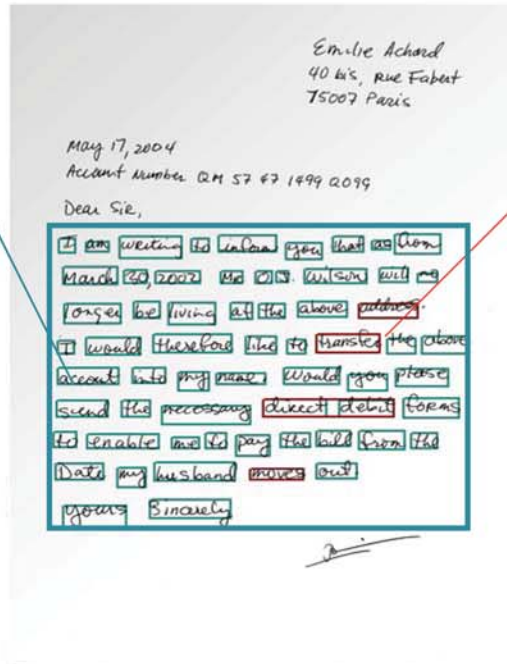 Emilie Achard
40 bis, Rue Fabert
75007 Paris
May 17, 2004
Account Number QM 57 47 1499 2099
Dear Sir,
I am writing to inform you that as from
March 30, 2002 Mr O.J. Wilson will no
longer be living at the above address.
I would therefore like to transfer the above
account into my name. Would you please
send the necessary direct debit forms
to enable me to pay the bill from the
Date my husband moves out
yours Sincerely